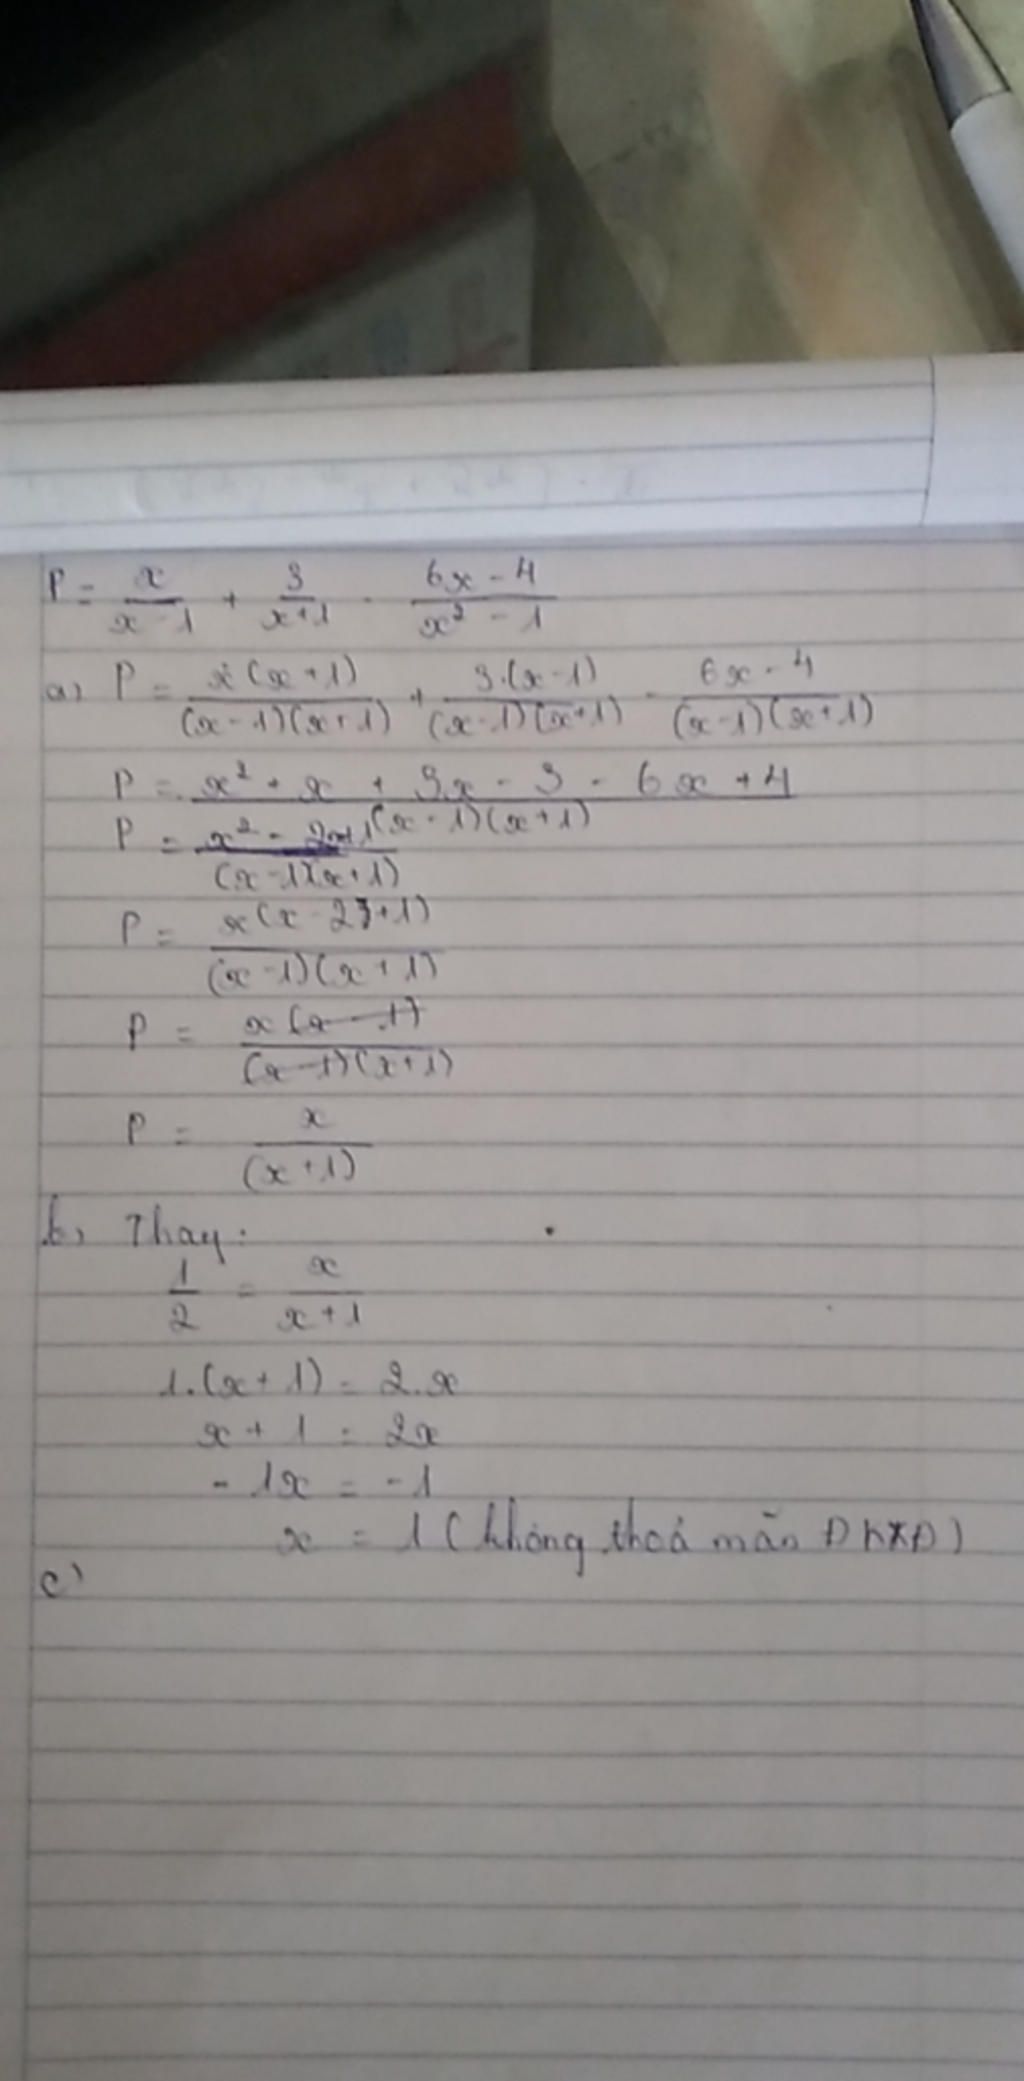 P = x/(x - 1) + 3/(x + 1) - (6x - 4)/(x² - 1)
a) P = x(x + 1)/((x - 1)(x + 1)) + 3.(x - 1)/((x - 1)(x + 1)) - (6x - 4)/((x - 1)(x + 1))
P = (x² + x + 3x - 3 - 6x + 4)/((x - 1)(x + 1))
P = (x² - 2x + 1)/((x - 1)(x + 1))
P = x(x - 2 + 1)/((x - 1)(x + 1))
P = x(x - 1)/((x - 1)(x + 1))
P = x/(x + 1)
b, Thay:
1/2 = x/(x + 1)
1.(x + 1) = 2.x
x + 1 = 2x
- 1x = - 1
x = 1 (không thoả mãn ĐKXĐ)
c)